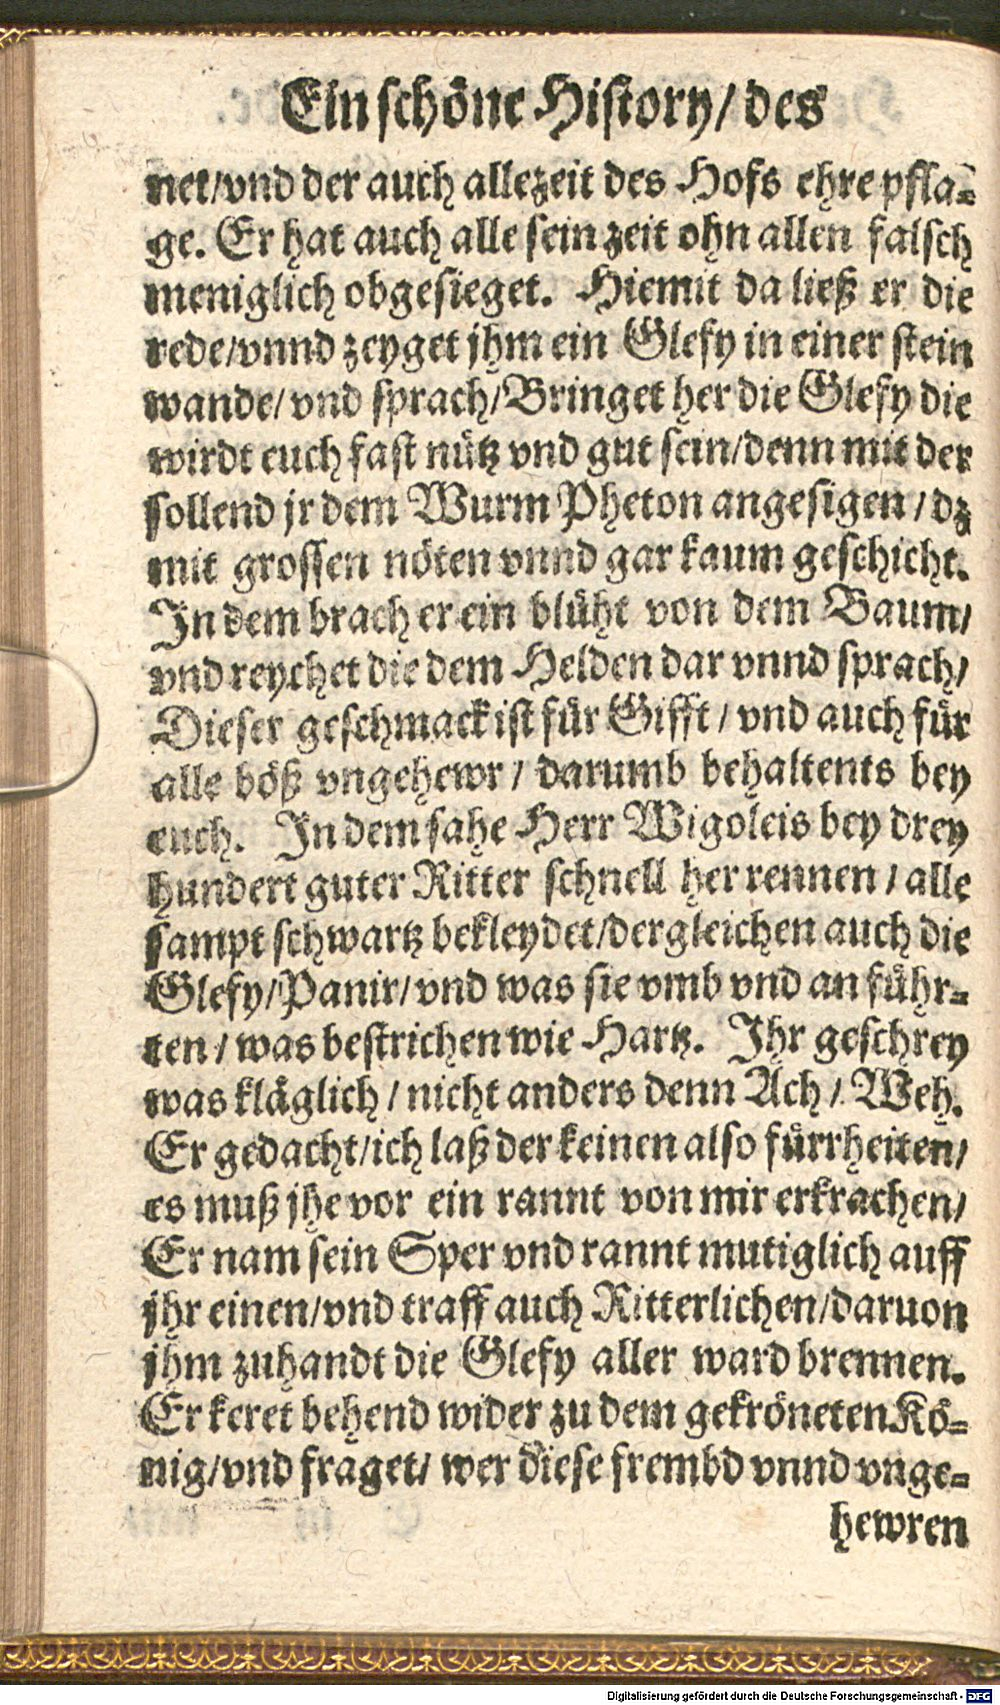 Ein schöne History/ des
net/vnd der auch allezeit des Hofs ehre pfla-
ge. Er hat auch alle sein zeit ohn allen falsch
meniglich obgesieget. Hiemit da ließ er die
rede/vnnd zeyget jhm ein Glefy in einer stein
wande/ vnd sprach/Bringet her die Glefy die
wirdt euch fast nütz vnd gut sein/denn mit der
sollend jr dem Wurm Pheton angesigen / dz
mit grossen nöten vnnd gar kaum geschicht.
In dem brach er ein blüht von dem Baum/
vnd reychet die dem Helden dar vnnd sprach/
Dieser geschmack ist für Gifft / vnd auch für
alle böß vngehewr / darumb behaltents bey
euch. In dem sahe Herr Wigoleis bey drey
hundert guter Ritter schnell her rennen / alle
sampt schwartz bekleydet/dergleichen auch die
Glefy/Panir/ vnd was sie vmb vnd an führ-
ten / was bestrichen wie Hartz. Ihr geschrey
was kläglich / nicht anders denn Ach / Weh.
Er gedacht/ich laß der keinen also fürrheiten/
es muß jhe vor ein rannt von mir erkrachen/
Er nam sein Sper vnd rannt mutiglich auff
jhr einen/vnd traff auch Ritterlichen/daruon
jhm zuhandt die Glefy aller ward brennen.
Er keret behend wider zu dem gekröneten Kö-
nig/vnd fraget/ wer diese frembd vnnd vnge-
hewren
Digitalisierung gefördert durch die Deutsche Forschungsgemeinschaft - DFG